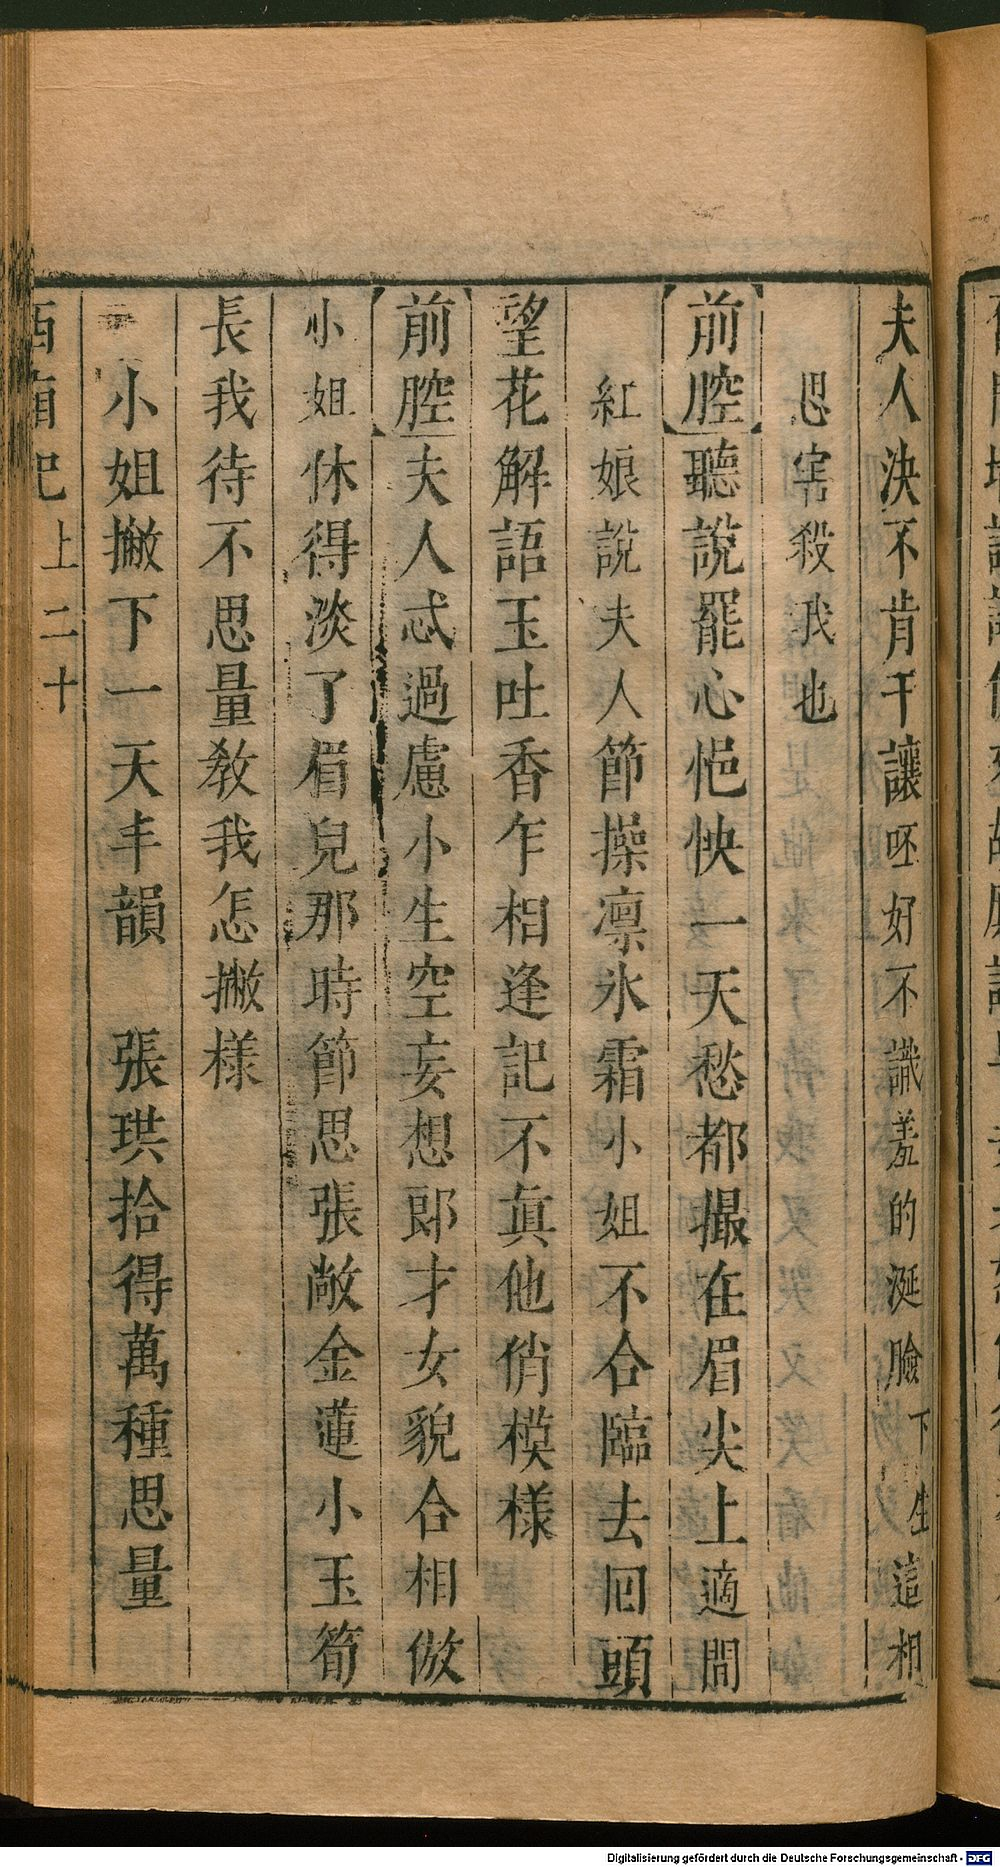 夫人決不肯干讓呸好不識羞的涎臉下生這相
思害殺我也
前腔聽說罷心悒怏一天愁都撮在眉尖上適間
紅娘說夫人節操凛氷霜小姐不合臨去回頭
望花解語玉吐香乍相逢記不真他俏模樣
前腔夫人忒過慮小生空妄想郎才女貌合相倣
小姐休得淡了眉兒那時節思張敞金蓮小玉筍
長我待不思量教我怎撇樣
小姐撇下一天丰韻　張珙拾得萬種思量
西廂記 上 二十
Digitalisierung gefördert durch die Deutsche Forschungsgemeinschaft - DFG